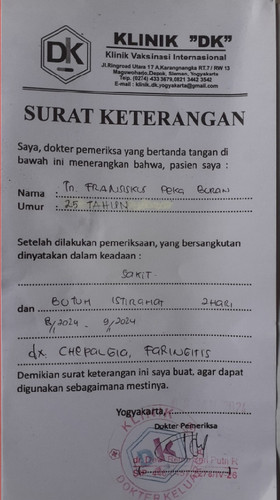 DK
KLINIK "DK"
Klinik Vaksinasi Internasional
Jl.Ringroad Utara 17 A.Karangnangka RT.7 / RW 13
Maguwoharjo,Depok, Sleman, Yogyakarta
Telp. (0274) 433 3679,0821 3442 3542
E-mail : klinik.dk.yogyakarta@gmail.com
SURAT KETERANGAN
Saya, dokter pemeriksa yang bertanda tangan di
bawah ini menerangkan bahwa, pasien saya :
Nama : Tn. FRANSISKUS
Umur : 25 TAHUN
Setelah dilakukan pemeriksaan, yang bersangkutan
dinyatakan dalam keadaan :
SAKIT
dan BUTUH ISTIRAHAT 2 HARI
8/2024 - 9/2024
dx. CHEPALGIA, FARINGITIS
Demikian surat keterangan ini saya buat, agar dapat
digunakan sebagaimana mestinya.
Yogyakarta,
Dokter Pemeriksa
KLINIK